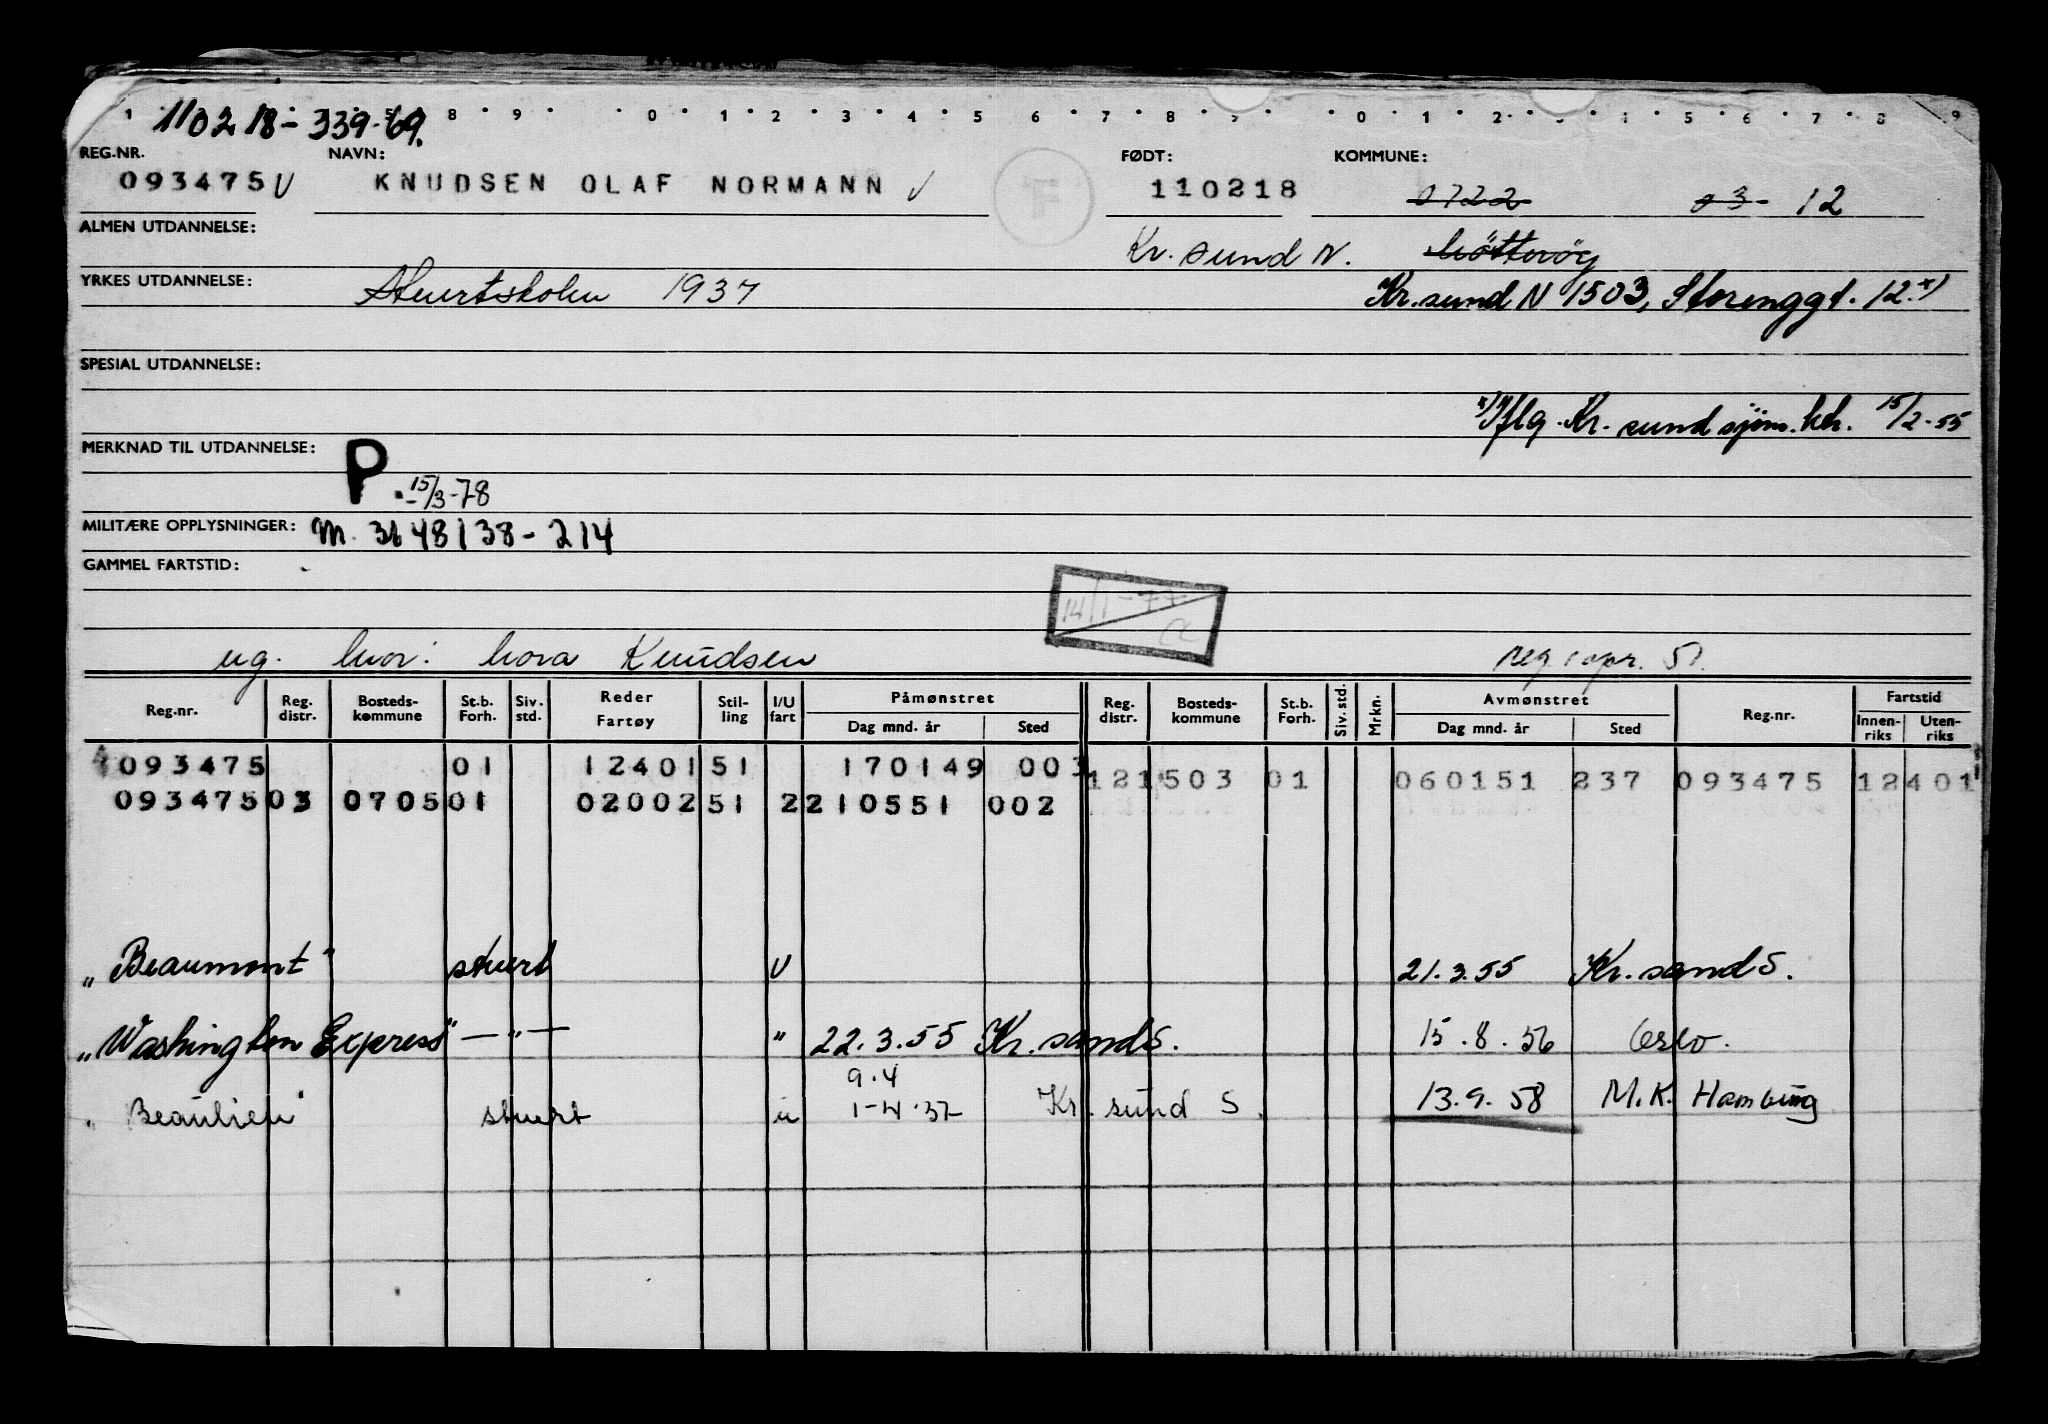 110218-339-69.
REG.NR. NAVN: FØDT: KOMMUNE:
093475 V KNUDSEN OLAF NORMANN F 110218 0722 03 12
ALMEN UTDANNELSE: Kr. sund N.
YRKES UTDANNELSE: Stuertskolen 1937 Kr.sund N 1503, Storenggt. 12.x)
SPESIAL UTDANNELSE:
x) Iflg. Kr. sund sjøm.ktr. 15/2-55
MERKNAD TIL UTDANNELSE: P. 15/3-78
MILITÆRE OPPLYSNINGER: M. 3648138-214
GAMMEL FARTSTID:
14/1-77
ug. mor: Knudsen reg apr. 51.
Reg.nr. Reg. distr. Bosteds-kommune St.b. Forh. Siv. std. Reder Fartøy Stil-ling I/U fart Påmønstret Reg. distr. Bosteds-kommune St.b. Forh. Siv. std. Mrkn. Avmønstret Reg.nr. Fartstid
Dag mnd. år Sted Dag mnd. år Sted Innen-riks Uten-riks
093475 01 1240151 170149 003 121 503 01 060151 237 093475 12401
093475 03 0705 01 0200251 2 210551 002
„Beaumont" stuert U 21.3.55 Kr.sand S.
„Washington Express" —"— " 22.3.55 Kr.sand S. 15.8.56 Oslo.
9.4
„Beaulieu" stuert u 1-4.57 Kr. sund S. 13.9.58 M.K. Hamburg